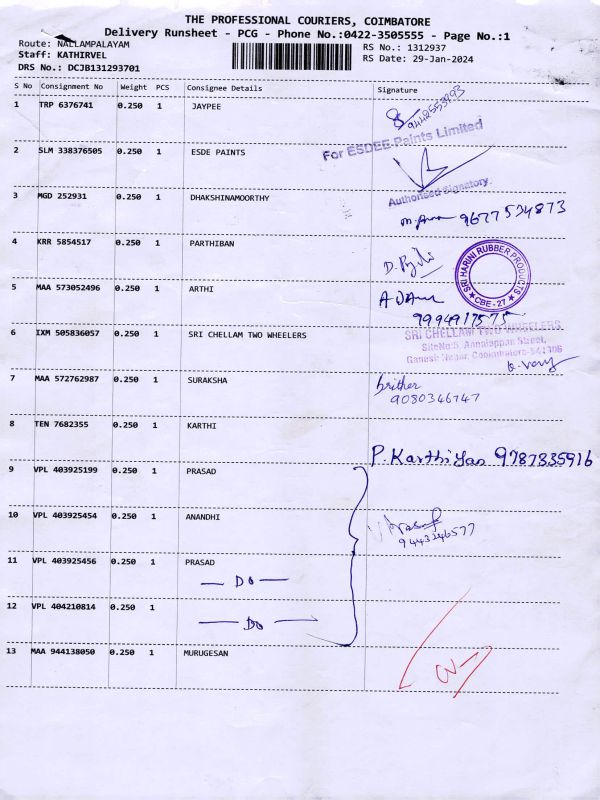 THE PROFESSIONAL COURIERS, COIMBATORE
Delivery Runsheet - PCG - Phone No.:0422-3505555 - Page No.:1
Route: NALLAMPALAYAM
RS No.: 1312937
Staff: KATHIRVEL
RS Date: 29-Jan-2024
DRS No.: DCJB131293701
S No Consignment No Weight PCS Consignee Details Signature
1 TRP 6376741 0.250 1 JAYPEE
For ESDEE Paints Limited
2 SLM 338376505 0.250 1 ESDE PAINTS
Authorised Signatory.
3 MGD 252931 0.250 1 DHAKSHINAMOORTHY
9677534873
4 KRR 5854517 0.250 1 PARTHIBAN
SRI HARINI RUBBER PRODUCTS
★ CBE - 27 ★
5 MAA 573052496 0.250 1 ARTHI
9994917575
6 IXM 505836057 0.250 1 SRI CHELLAM TWO WHEELERS
SRI CHELLAM TWO WHEELERS
Site No:5, Annaiappan Street,
Ganesh Nagar, Coimbatore-641006
7 MAA 572762987 0.250 1 SURAKSHA
brither
9080346747
8 TEN 7682355 0.250 1 KARTHI
P. Karthiyan 9787335916
9 VPL 403925199 0.250 1 PRASAD
10 VPL 403925454 0.250 1 ANANDHI
9443246577
11 VPL 403925456 0.250 1 PRASAD
— DO —
12 VPL 404210814 0.250 1
— DO —
13 MAA 944138050 0.250 1 MURUGESAN